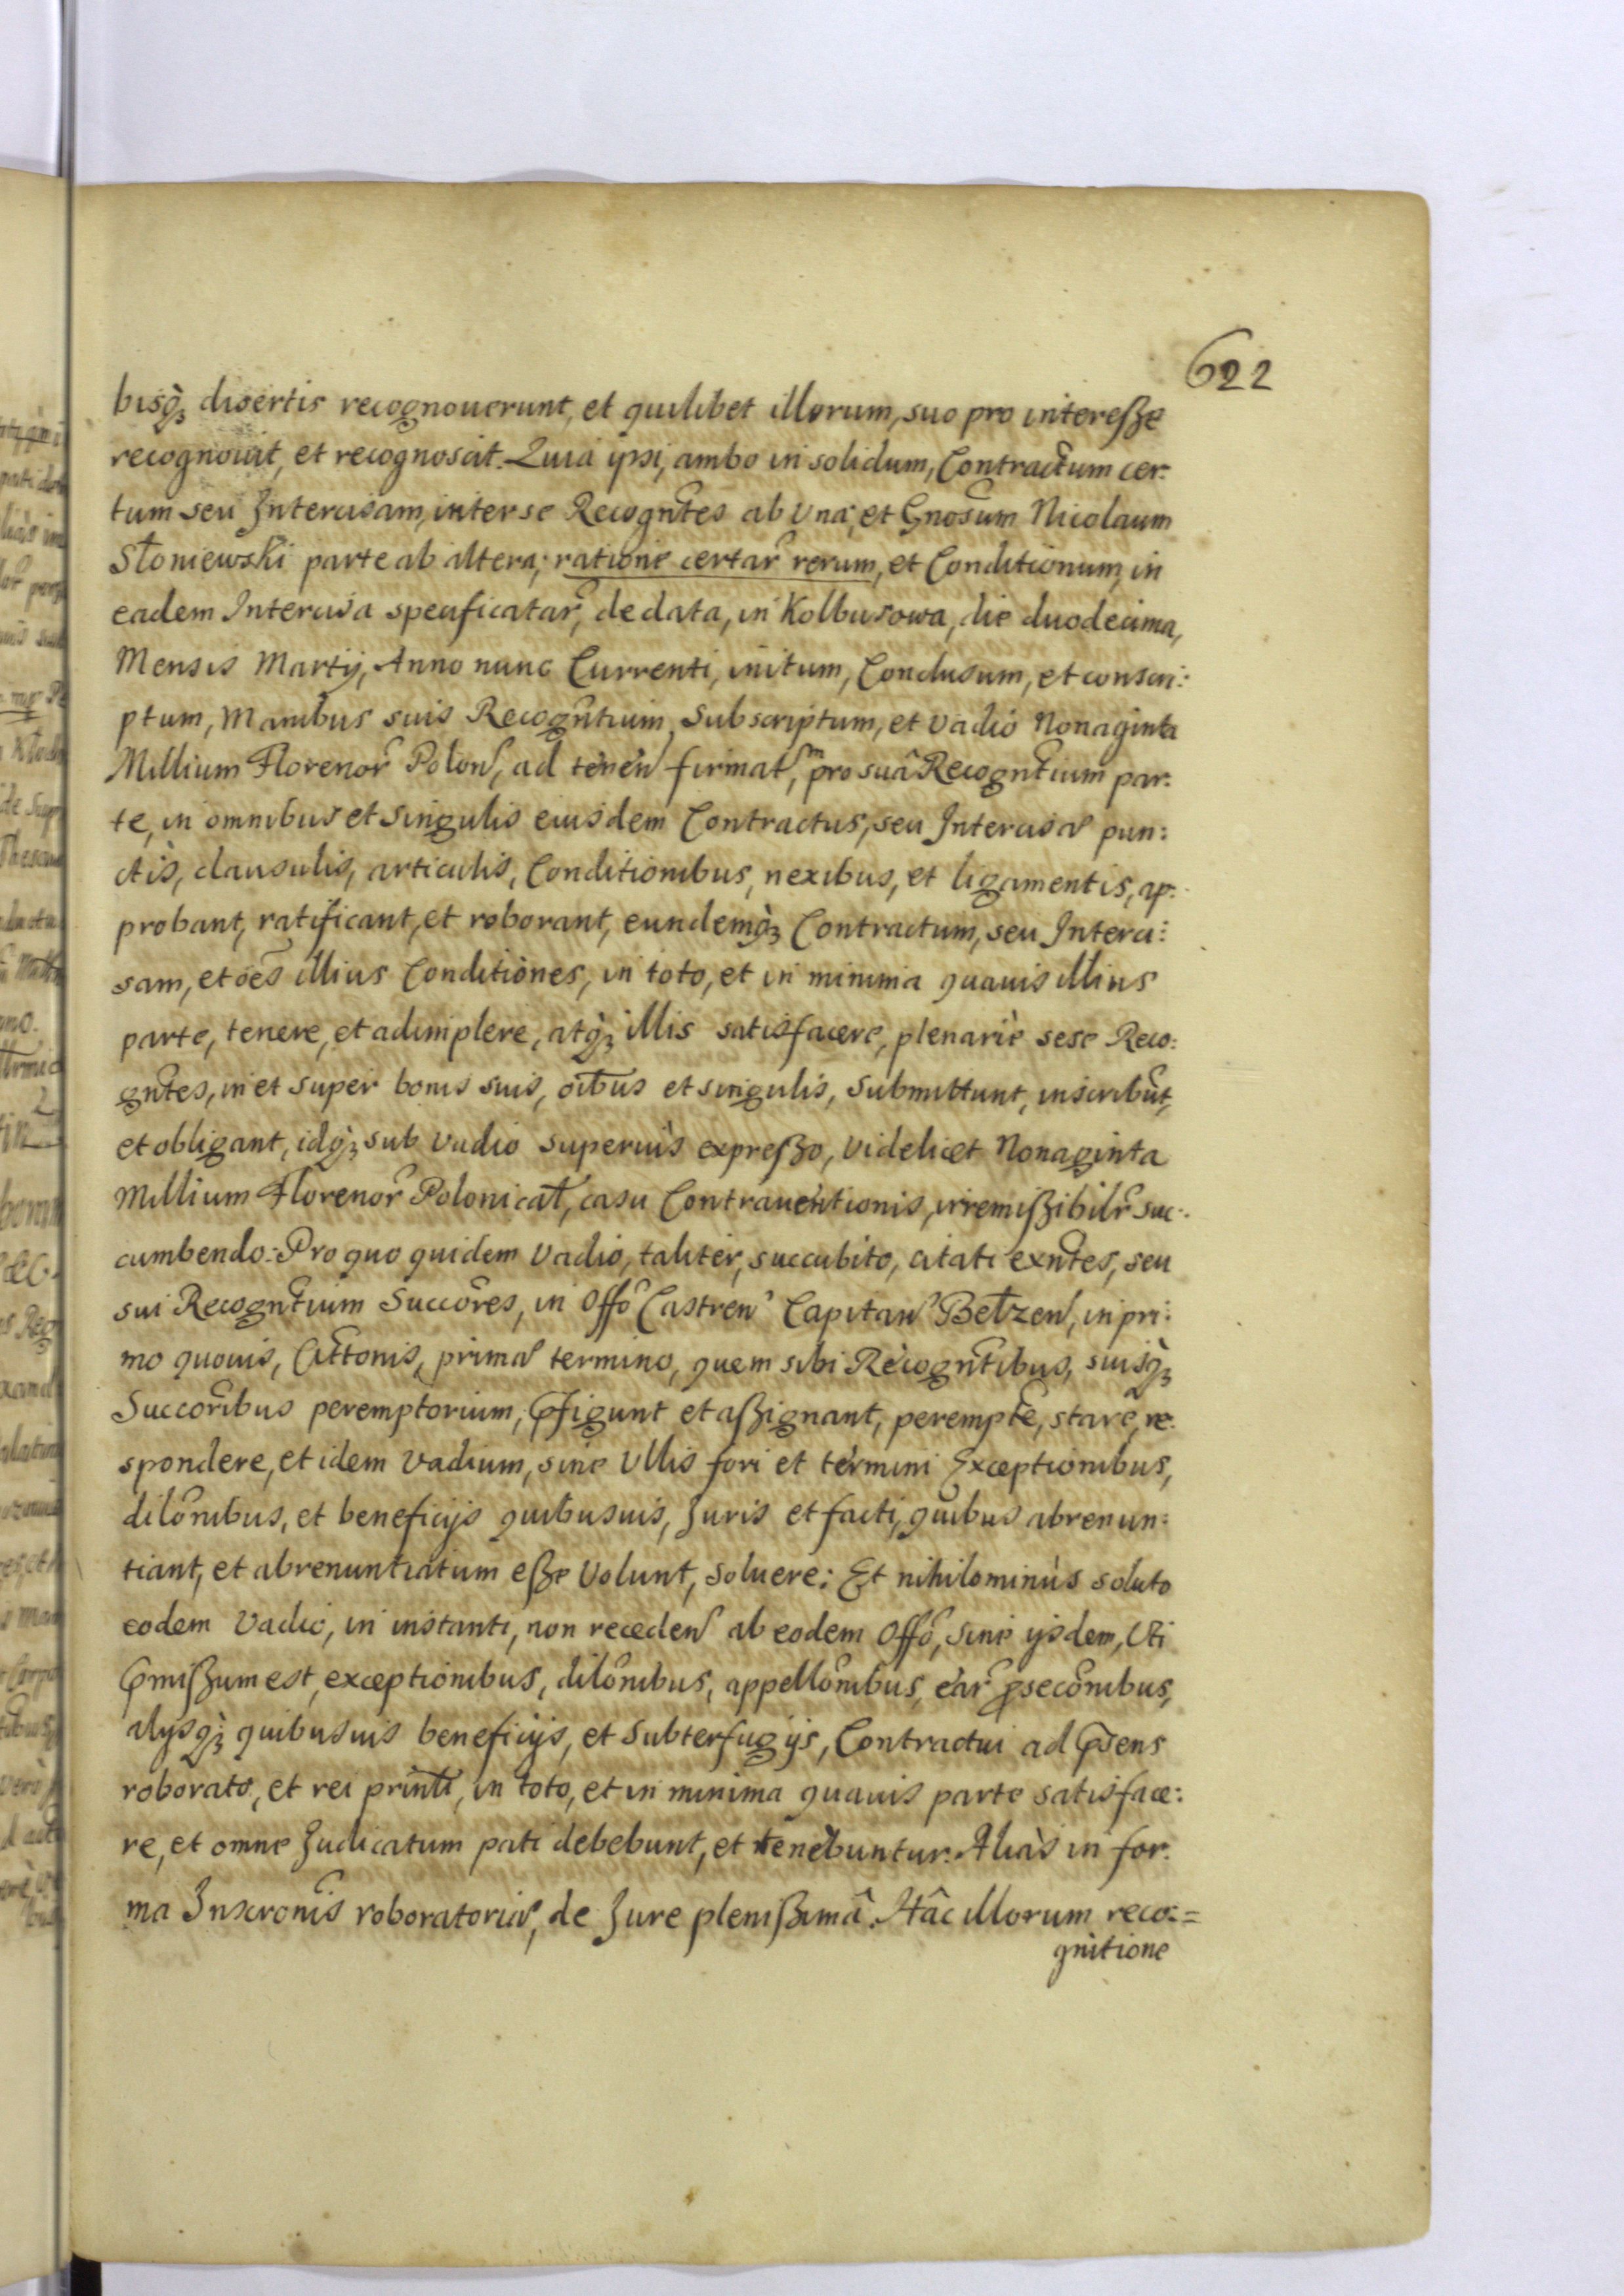 622
bisq; disertis recognouerunt, et quilibet illorum, suo pro intereße
recognouit, et recognoscit. Quia ipsi, ambo in solidum, Contractum cer:
tum seu Intercisam, inter se Recogntes ab Una, et Gnosum Nicolaum
Słoniewski parte ab altera; ratione certar rerum, et Conditionum, in
eadem Intercisa specificatar, de data, in Kolbusowa, die duodecima,
Mensis Martij, Anno nunc Currenti, initum, Conclusum, et conscri:
ptum, Manibus suis Recogntium, Subscriptum, et Vadio Nonaginta
Millium Florenor Polon, ad tenen firmatm, pro suâ Recogntium par:
te, in omnibus et singulis eiusdem Contractus, seu Intercisæ pun:
ctis, clausulis, articulis, Conditionibus, nexibus, et ligamentis, ap:
probant, ratificant, et roborant, eundemq; Contractum, seu Interci:
sam, et oēs illius Conditiones, in toto, et in minima quauis illius
parte, tenere, et adimplere, atq; illis satisfacere, plenariè sese Reco:
gntes, in et super bonis suis, oibus et singulis, Submittunt, inscribūt,
et obligant, idq; sub Vadio superiùs expreßo, Videlicet Nonaginta
Millium Florenor Polonicat, casu Contrauentionis, irremißibilr suc:
cumbendo: Pro quo quidem Vadio, taliter, succubito, citati exntes, seu
sui Recogntium Succores, in Offo Castren Capitan Bełzen, in pri:
mo quouis, Citтonis, primæ termino, quem sibi Recogntibus, suisq;
Succoribus peremptorium, pfigunt et aßignant, perempte, stare, re:
spondere, et idem Vadium, sine Ullis fori et termini Exceptionibus,
dilonibus, et beneficijs quibusuis, Juris et facti, quibus abrenun:
tiant, et abrenuntiatum eße Volunt, soluere: Et nihilominùs soluto
eodem Vadio, in instanti, non receden ab eodem Offo, sine ijsdem, Uti
pmißum est, exceptionibus, dilonibus, appellonibus, ear psecōnibus,
alijsq; quibusuis beneficijs, et Subterfugijs, Contractui ad pſens
roborato, et rei printi, in toto, et in minima quauis parte satisface:
re, et omne Judicatum pati debebunt, et tenebuntur. Aliàs in for:
ma Inscronis roboratoriæ, de Jure plenißimâ. Hâc illorum reco:=
gnitione